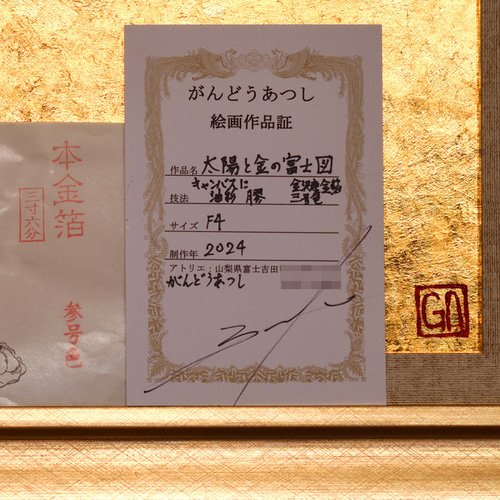 がんどうあつし
絵画作品証
作品名 太陽と金の富士図
技法 キャンバスに油彩 膠 金沢産金箔三号色
サイズ F4
制作年 2024
アトリエ:山梨県富士吉田
がんどうあつし
本金箔
三寸六分
参号色
GA